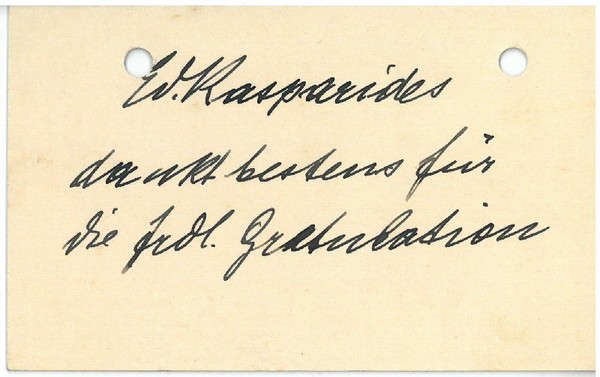 Ed. Kasparides
dankt bestens für
die frdl. Gratulation